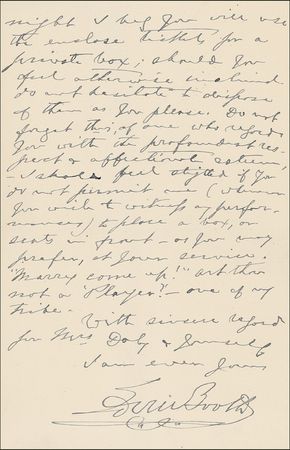 might I beg you will use
the enclose tickets for a
private box; should you
feel otherwise inclined
do not hesitate to dispose
of them as you please. Do not
forget this, of one who regards
you with the profoundest res-
pect & affectionate esteem
I shall feel slighted if you
do not permit me (when
you wish to witness my perfor-
mances) to place a box, or
seats in front – as you may
prefer, at your service.
"Marry come up!" art thou
not a "Player?" – one of my
tribe.
With sincere regard
for Mrs Daly & yourself
I am ever yours
Edwin Booth